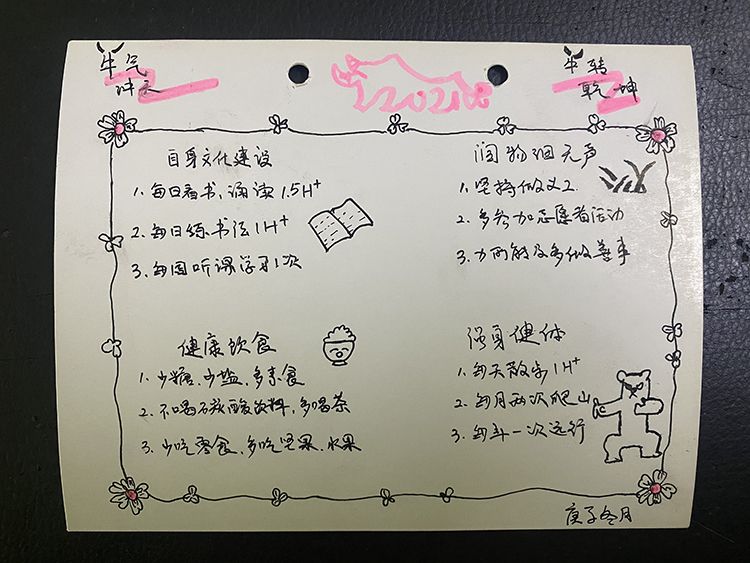 牛气
冲天
2021
牛转
乾坤
自身文化建设
1. 每日看书、诵读 1.5H+
2. 每日练书法 1H+
3. 每周听课学习1次
润物细无声
1. 坚持做义工
2. 多参加志愿者活动
3. 力所能及多做善事
健康饮食
1. 少糖、少盐、多素食
2. 不喝碳酸饮料，多喝茶
3. 少吃零食、多吃坚果、水果
强身健体
1. 每天散步1H+
2. 每月两次爬山
3. 每年一次远行
庚子冬月